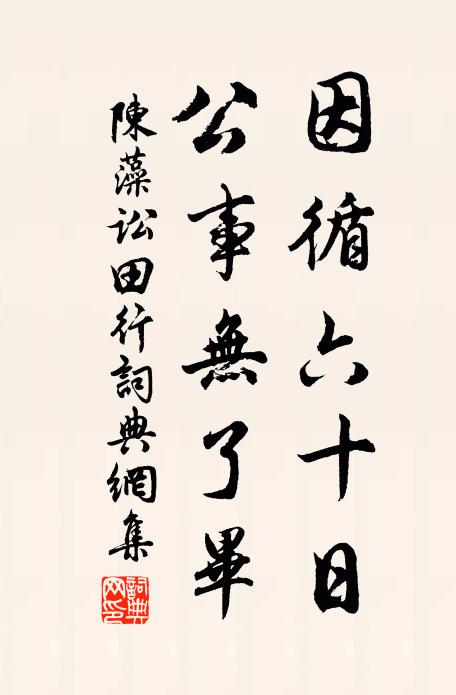 因循六十日
公事無了畢
陳藻訟田行詞典網集
詞典網印